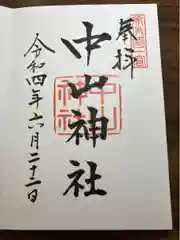 奉拝
中山神社
中山神社
令和四年六月二十二日